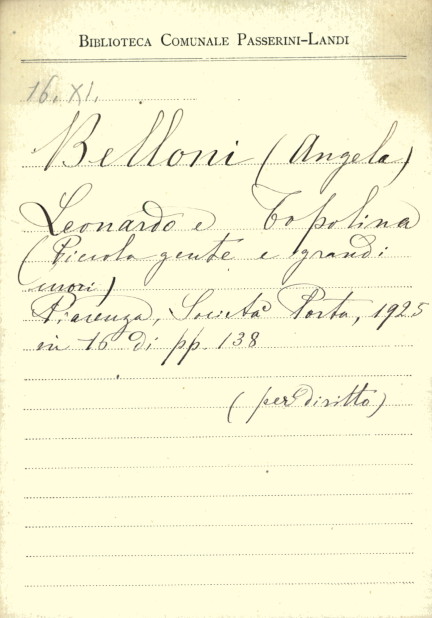 BIBLIOTECA COMUNALE PASSERINI-LANDI
16. XI.
Belloni (Angela)
Leonardo e Topolina
(Piccola gente e grandi
cuori)
Piacenza, Società Porta, 1925
in 16° di pp. 138
(per diritto)